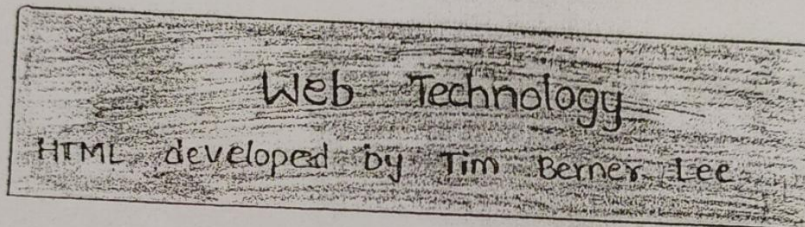 Web Technology
HTML developed by Tim Berner Lee